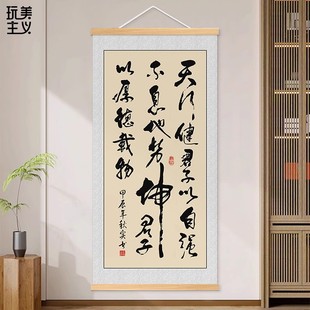 玩美
主义
天行健君子以自强
不息地势坤君子
以厚德載物
甲辰年秋实书